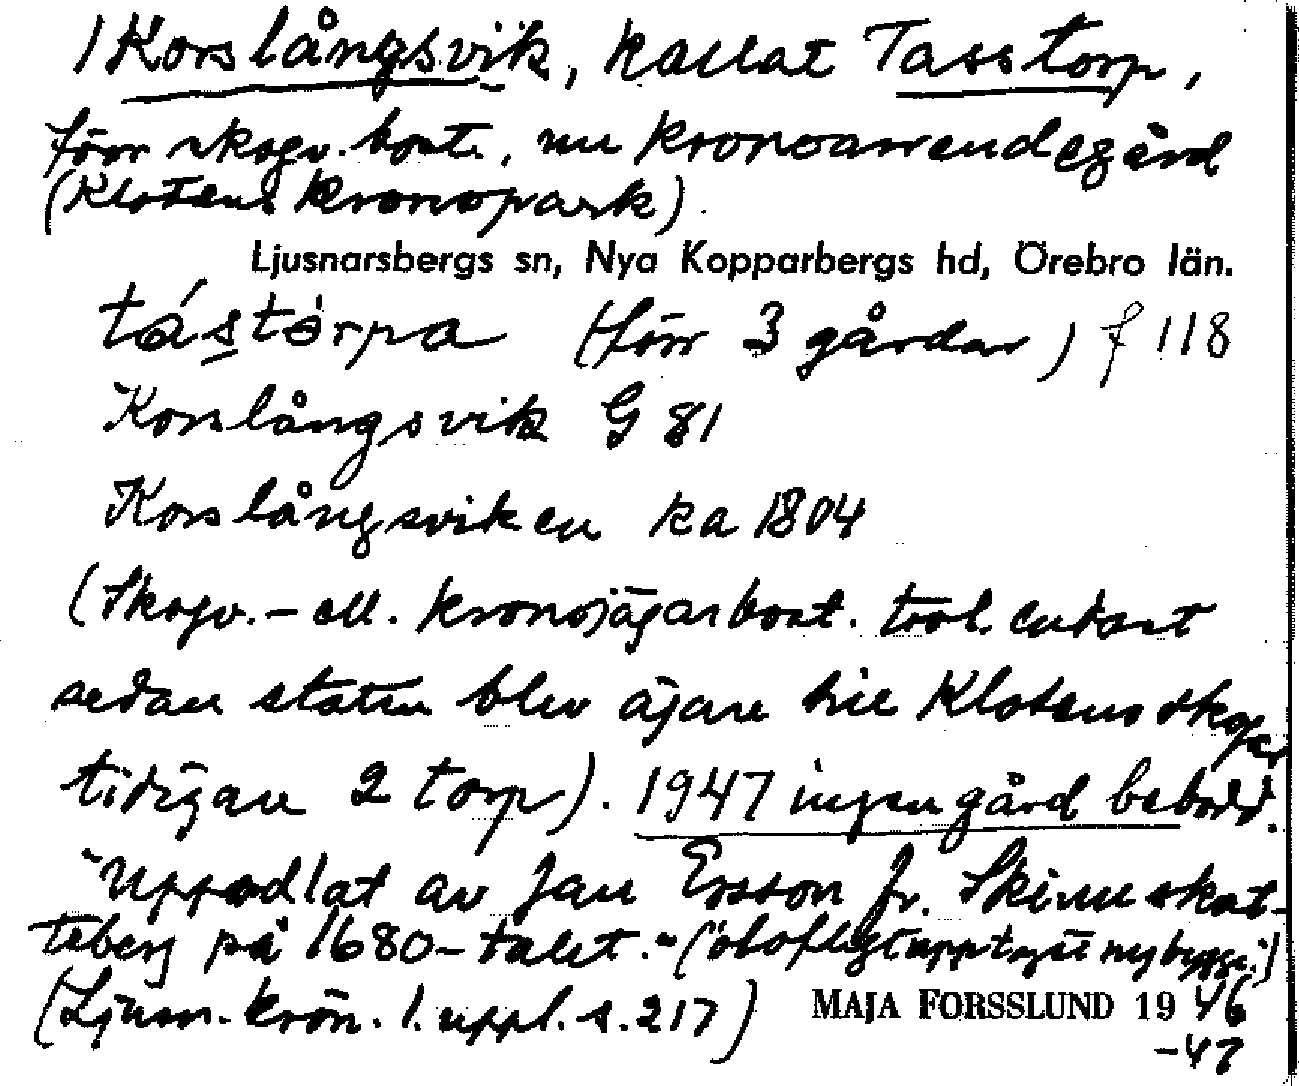 1 Korslångsvik, kallat Tasstorp,
förr skogv. bost., nu kronoarrendegård
(Klotens kronopark).
Ljusnarsbergs sn, Nya Kopparbergs hd, Örebro län.
tástòrpa (förr 3 gårdar) f 118
Korslångsvik G 81
Korslångsviken ka 1804
(Skogv.- ell. kronojägarbost. trol. endast
sedan staten blev ägare till Klotens skogar
tidigare 2 torp). 1947 ingen gård bebodd.
"Uppodlat av Jan Ersson fr. Skinnskat-
teberg på 1680-talet." ("olofligt upptaget nybygge")
(Ljusn. krön. 1. uppl. s. 217) MAJA FORSSLUND 1946
-47